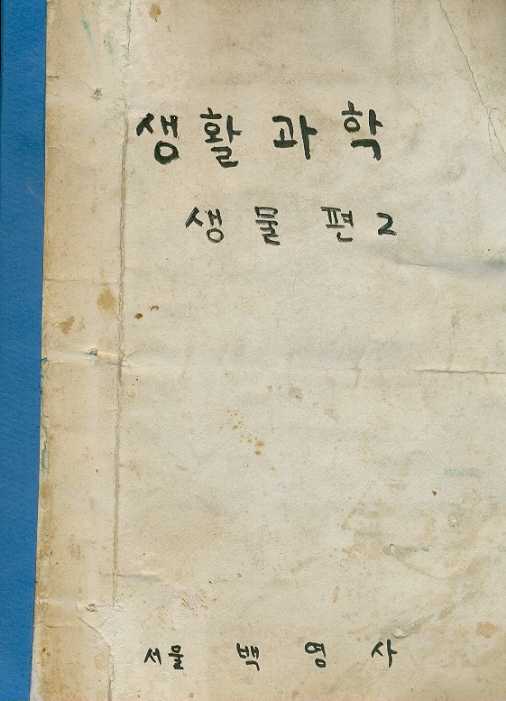 생활과학
생물편 2
서울 백영사